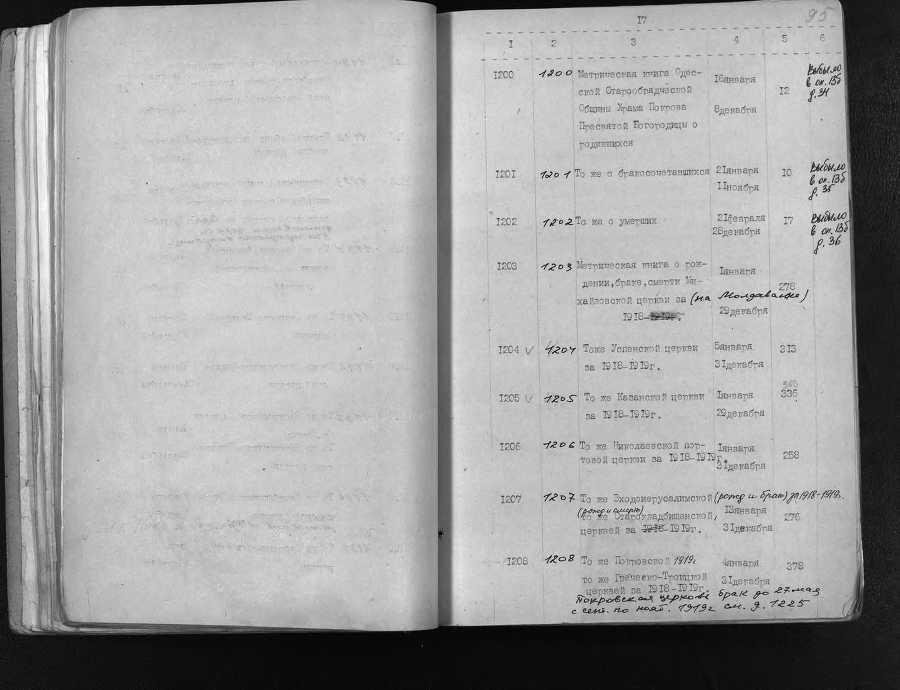 17
95
1 2 3 4 5 6
1200 1200 Метрическая книга Одес- 16января 12 Выбыло
ской Старообрядческой в оп. 13б
Общины Храма Покрова 8декабря д. 34
Пресвятой Богородицы о
родившихся
1201 1201 То же о бракосочетавшихся 21января 10 Выбыло
11ноября в оп. 13б
д. 35
1202 1202 То же о умерших 21февраля 17 Выбыло
28декабря в оп. 13б
д. 36
1203 1203 Метрическая книга о рож- 1января 278
дении,браке,смерти Ми-
хайловской церкви за (на Молдаванке)
1918-1919г. 29декабря
1204 V 1204 Тоже Успенской церкви 5января 313
за 1918-1919г. 31декабря
1205 V 1205 То же Казанской церкви 1января 336
за 1918-1919г. 29декабря
1206 1206 То же Николаевской пор- 1января 258
товой церкви за 1918-1919г. 31декабря
1207 1207 То же Входоиерусалимской (рожд и брак) за 1918-1919г.
(рожд и смерт)
то же Старокладбищенской, 13января 276
церквей за 1918-1919г. 31декабря
1208 1208 То же Покровской 1919г 4января 378
то же Греческо-Троицкой 31декабря
церквей за 1918-1919г.
Покровская церковь брак до 27 мая
с сент. по нояб. 1919г см. д. 1225